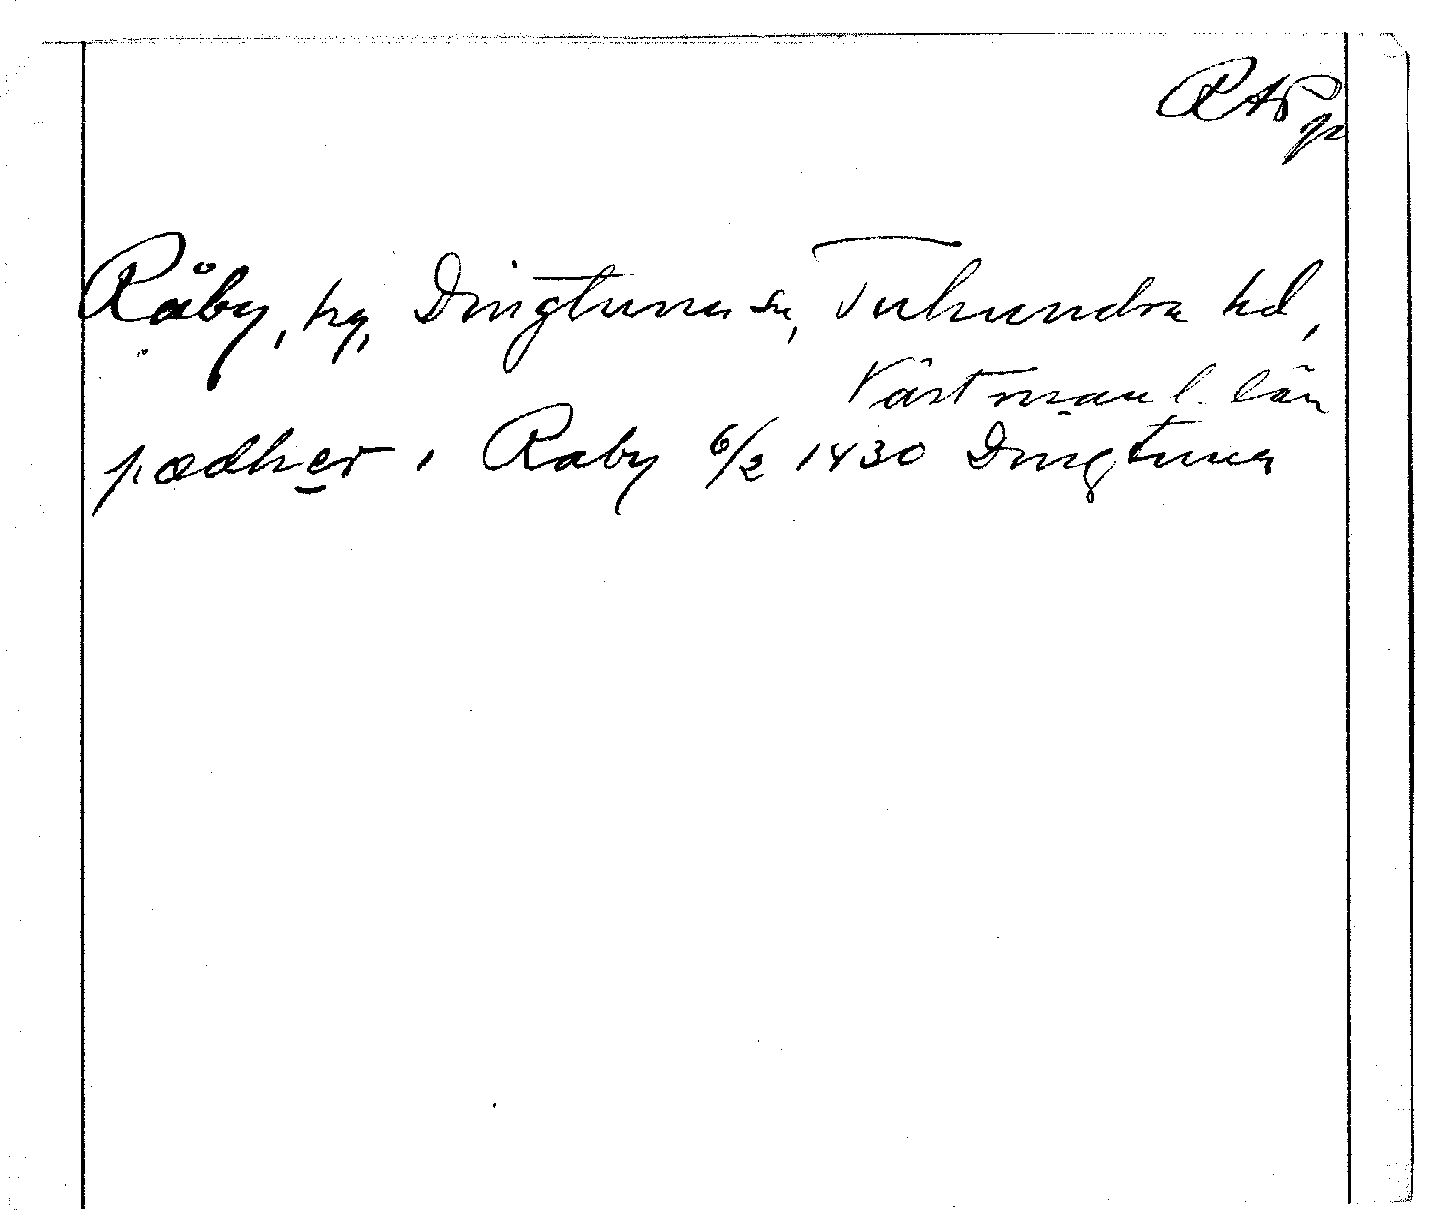 RAp
Råby, hg, Dingtuna sn, Tuhundra hd,
Västmanl. län
pædher i Raby 6/2 1430 Dingtuna